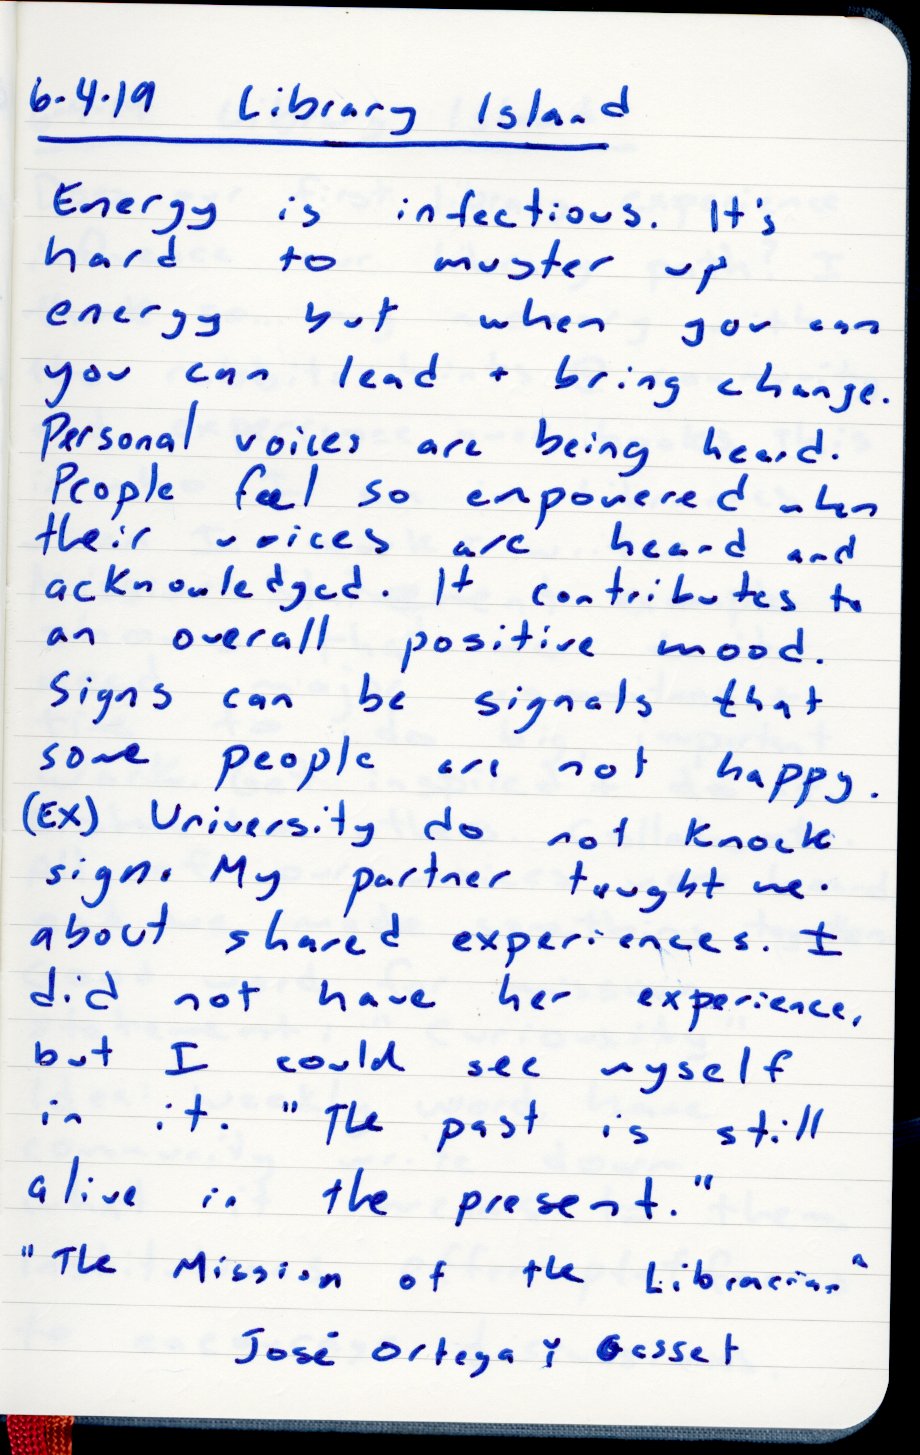 6.4.19 Library Island
Energy is infectious. It's
hard to muster up
energy but when you can
you can lead + bring change.
Personal voices are being heard.
People feel so empowered when
their voices are heard and
acknowledged. It contributes to
an overall positive mood.
Signs can be signals that
some people are not happy.
(EX) University do not knock
sign. My partner taught me.
about shared experiences. I
did not have her experience,
but I could see myself
in it. "The past is still
alive in the present."
"The Mission of the Librarian"
José Ortega ÿ Gasset